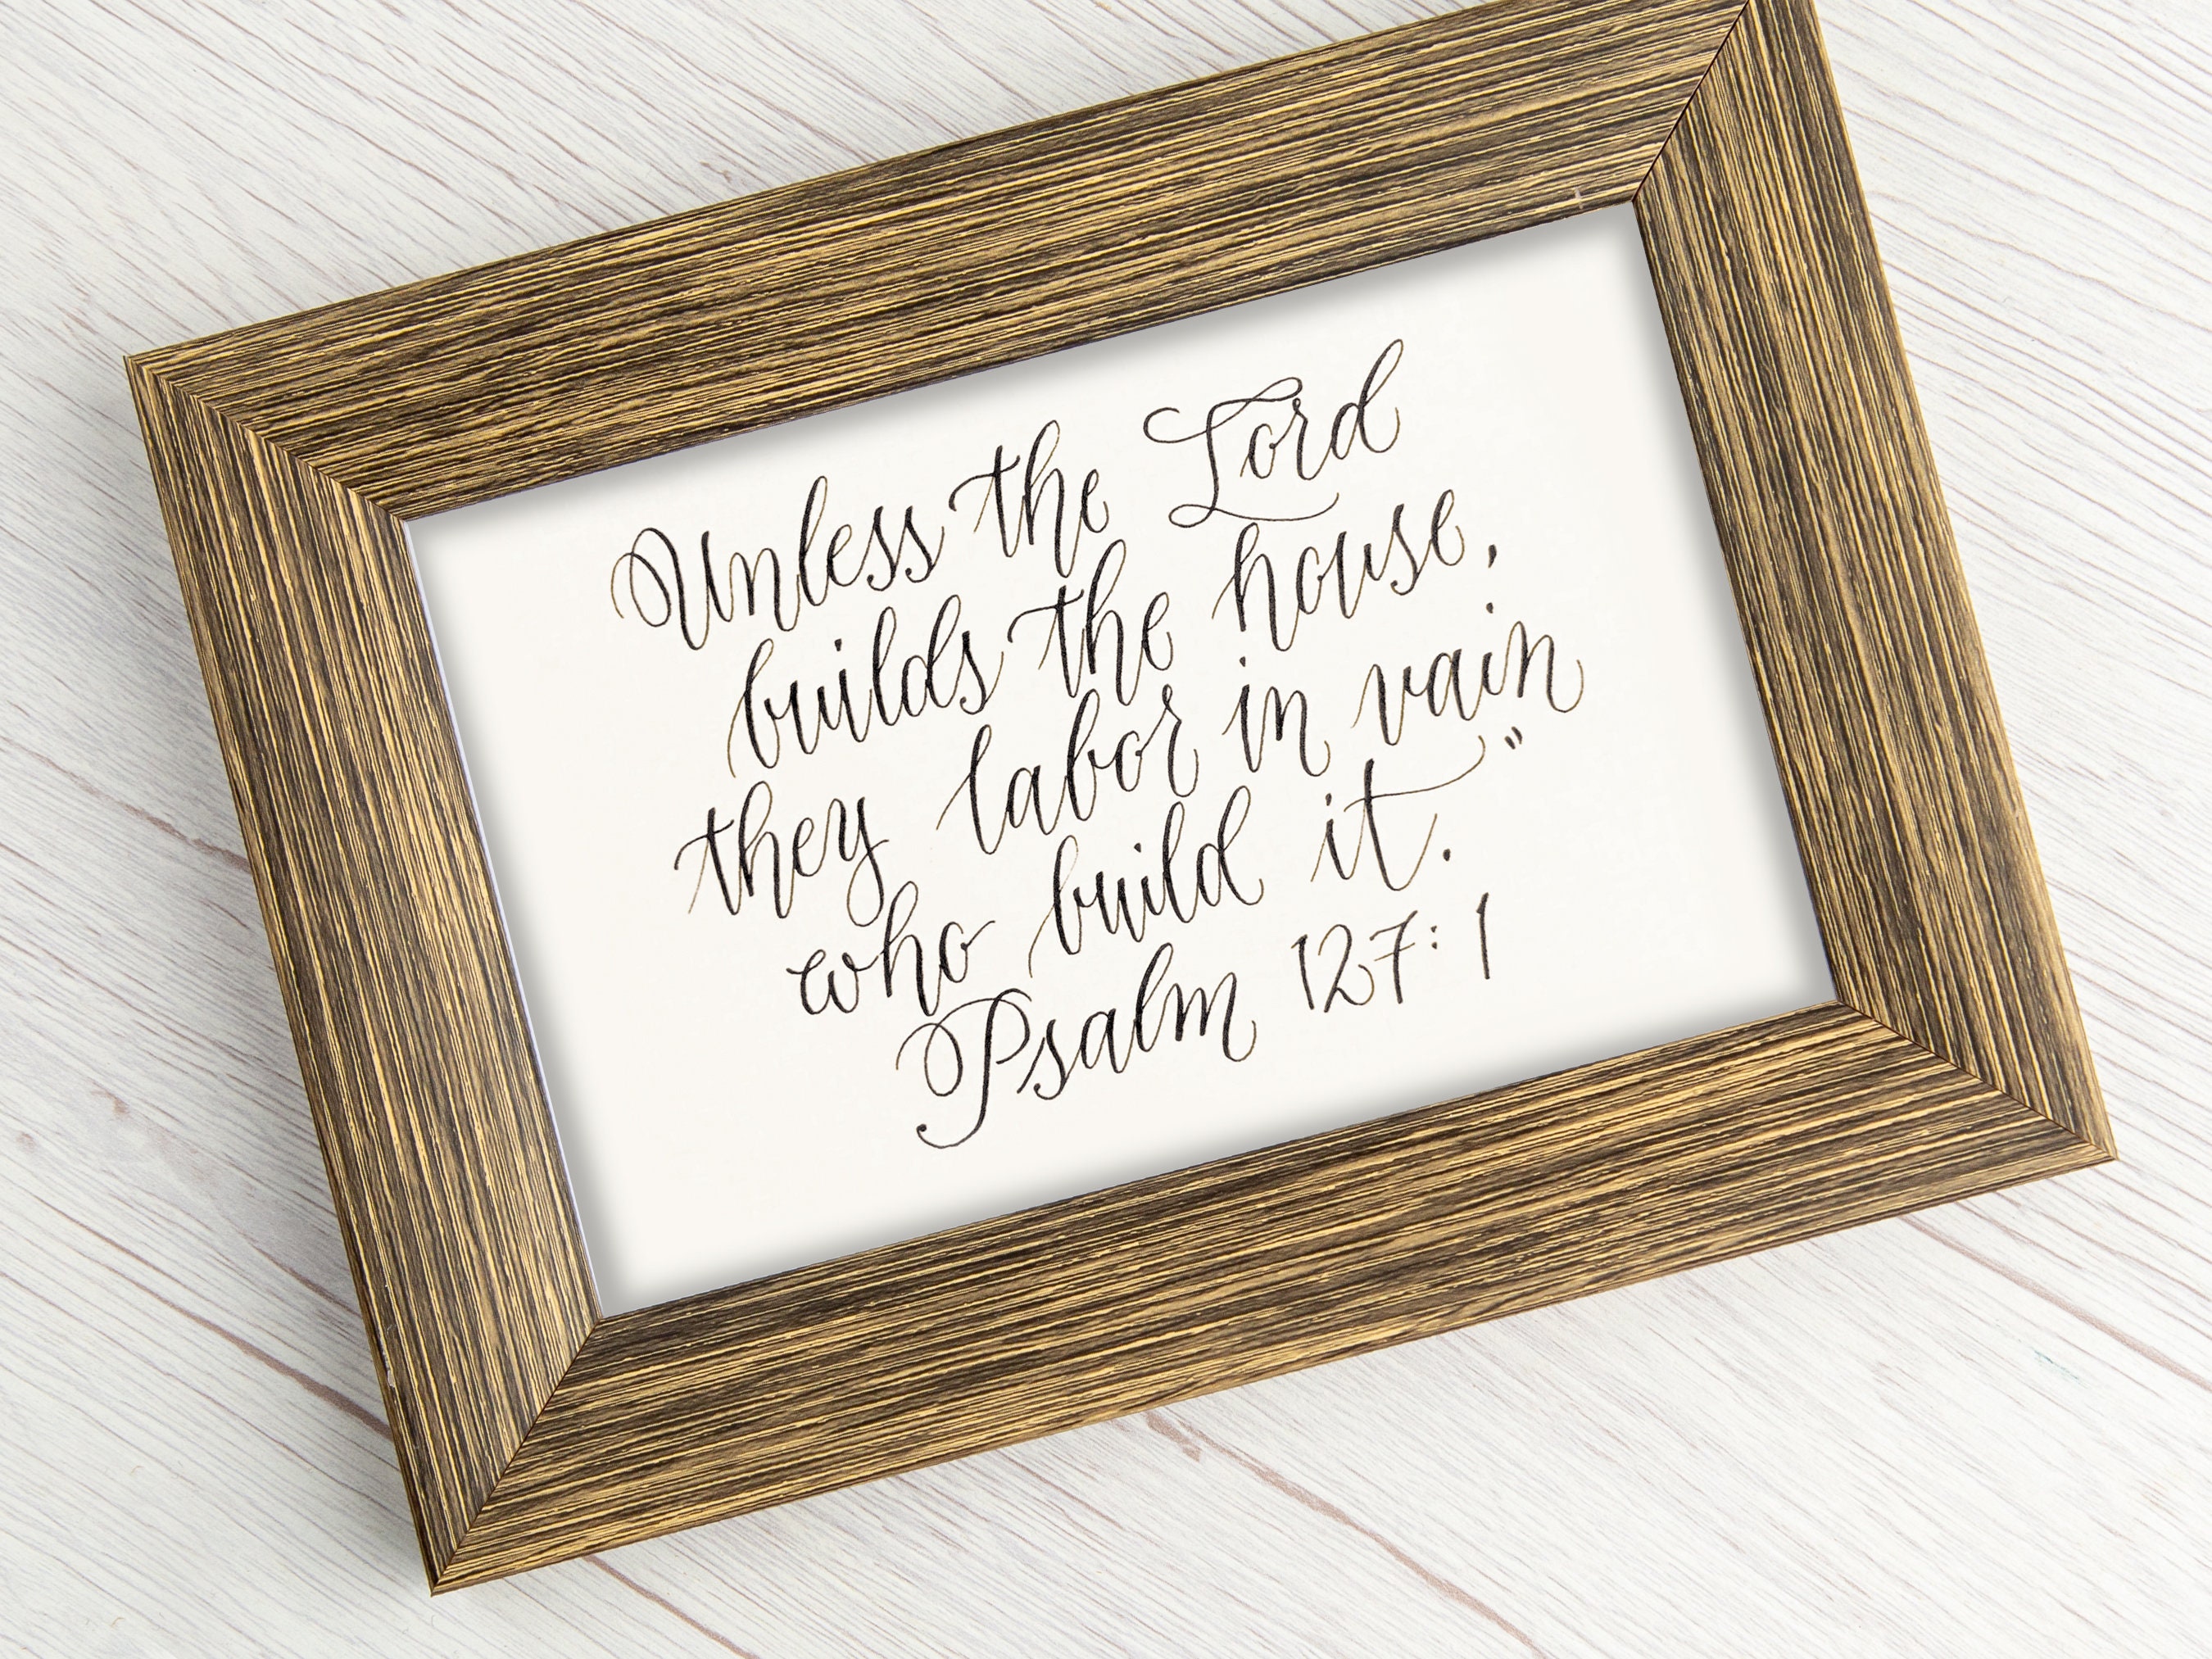 Unless the Lord
builds the house,
they labor in vain
who build it."
Psalm 127:1